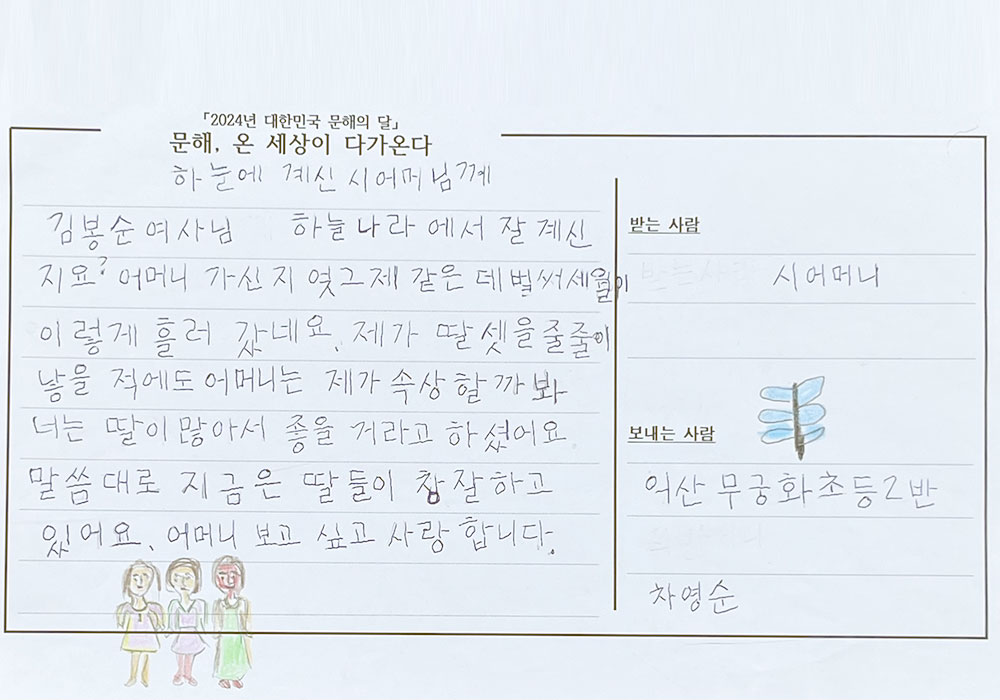 「2024년 대한민국 문해의 달」
문해, 온 세상이 다가온다
하눈에 계신 시어머님께
김봉순여사님 하늘나라에서 잘 계신
지요? 어머니 가신지 엊그제 같은데 벌써 세월이
이렇게 흘러 갔네요. 제가 딸셋을 줄줄이
낳을 적에도 어머니는 제가 속상할까봐
너는 딸이 많아서 좋을 거라고 하셨어요
말씀대로 지금은 딸들이 참 잘하고
있어요. 어머니 보고 싶고 사랑합니다.
받는 사람
시어머니
보내는 사람
익산 무궁화초등2반
차영순